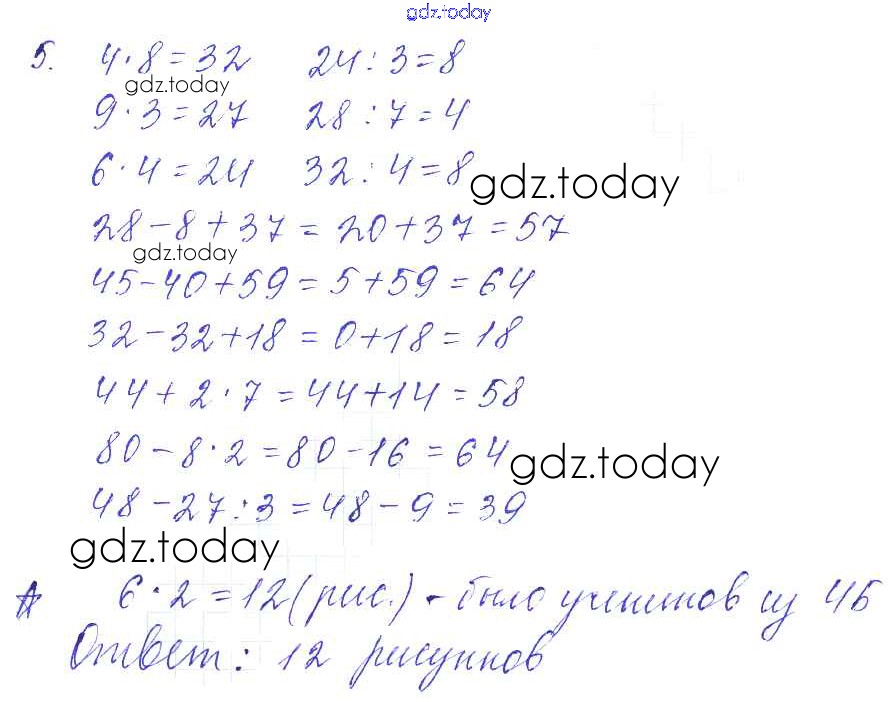 gdz.today
5. 4·8=32 24:3=8
gdz.today
9·3=27 28:7=4
6·4=24 32:4=8
gdz.today
28-8+37=20+37=57
gdz.today
45-40+59=5+59=64
32-32+18=0+18=18
44+2·7=44+14=58
80-8·2=80-16=64
gdz.today
48-27:3=48-9=39
gdz.today
6·2=12(рис.) - было учеников из 4Б
Ответ: 12 рисунков